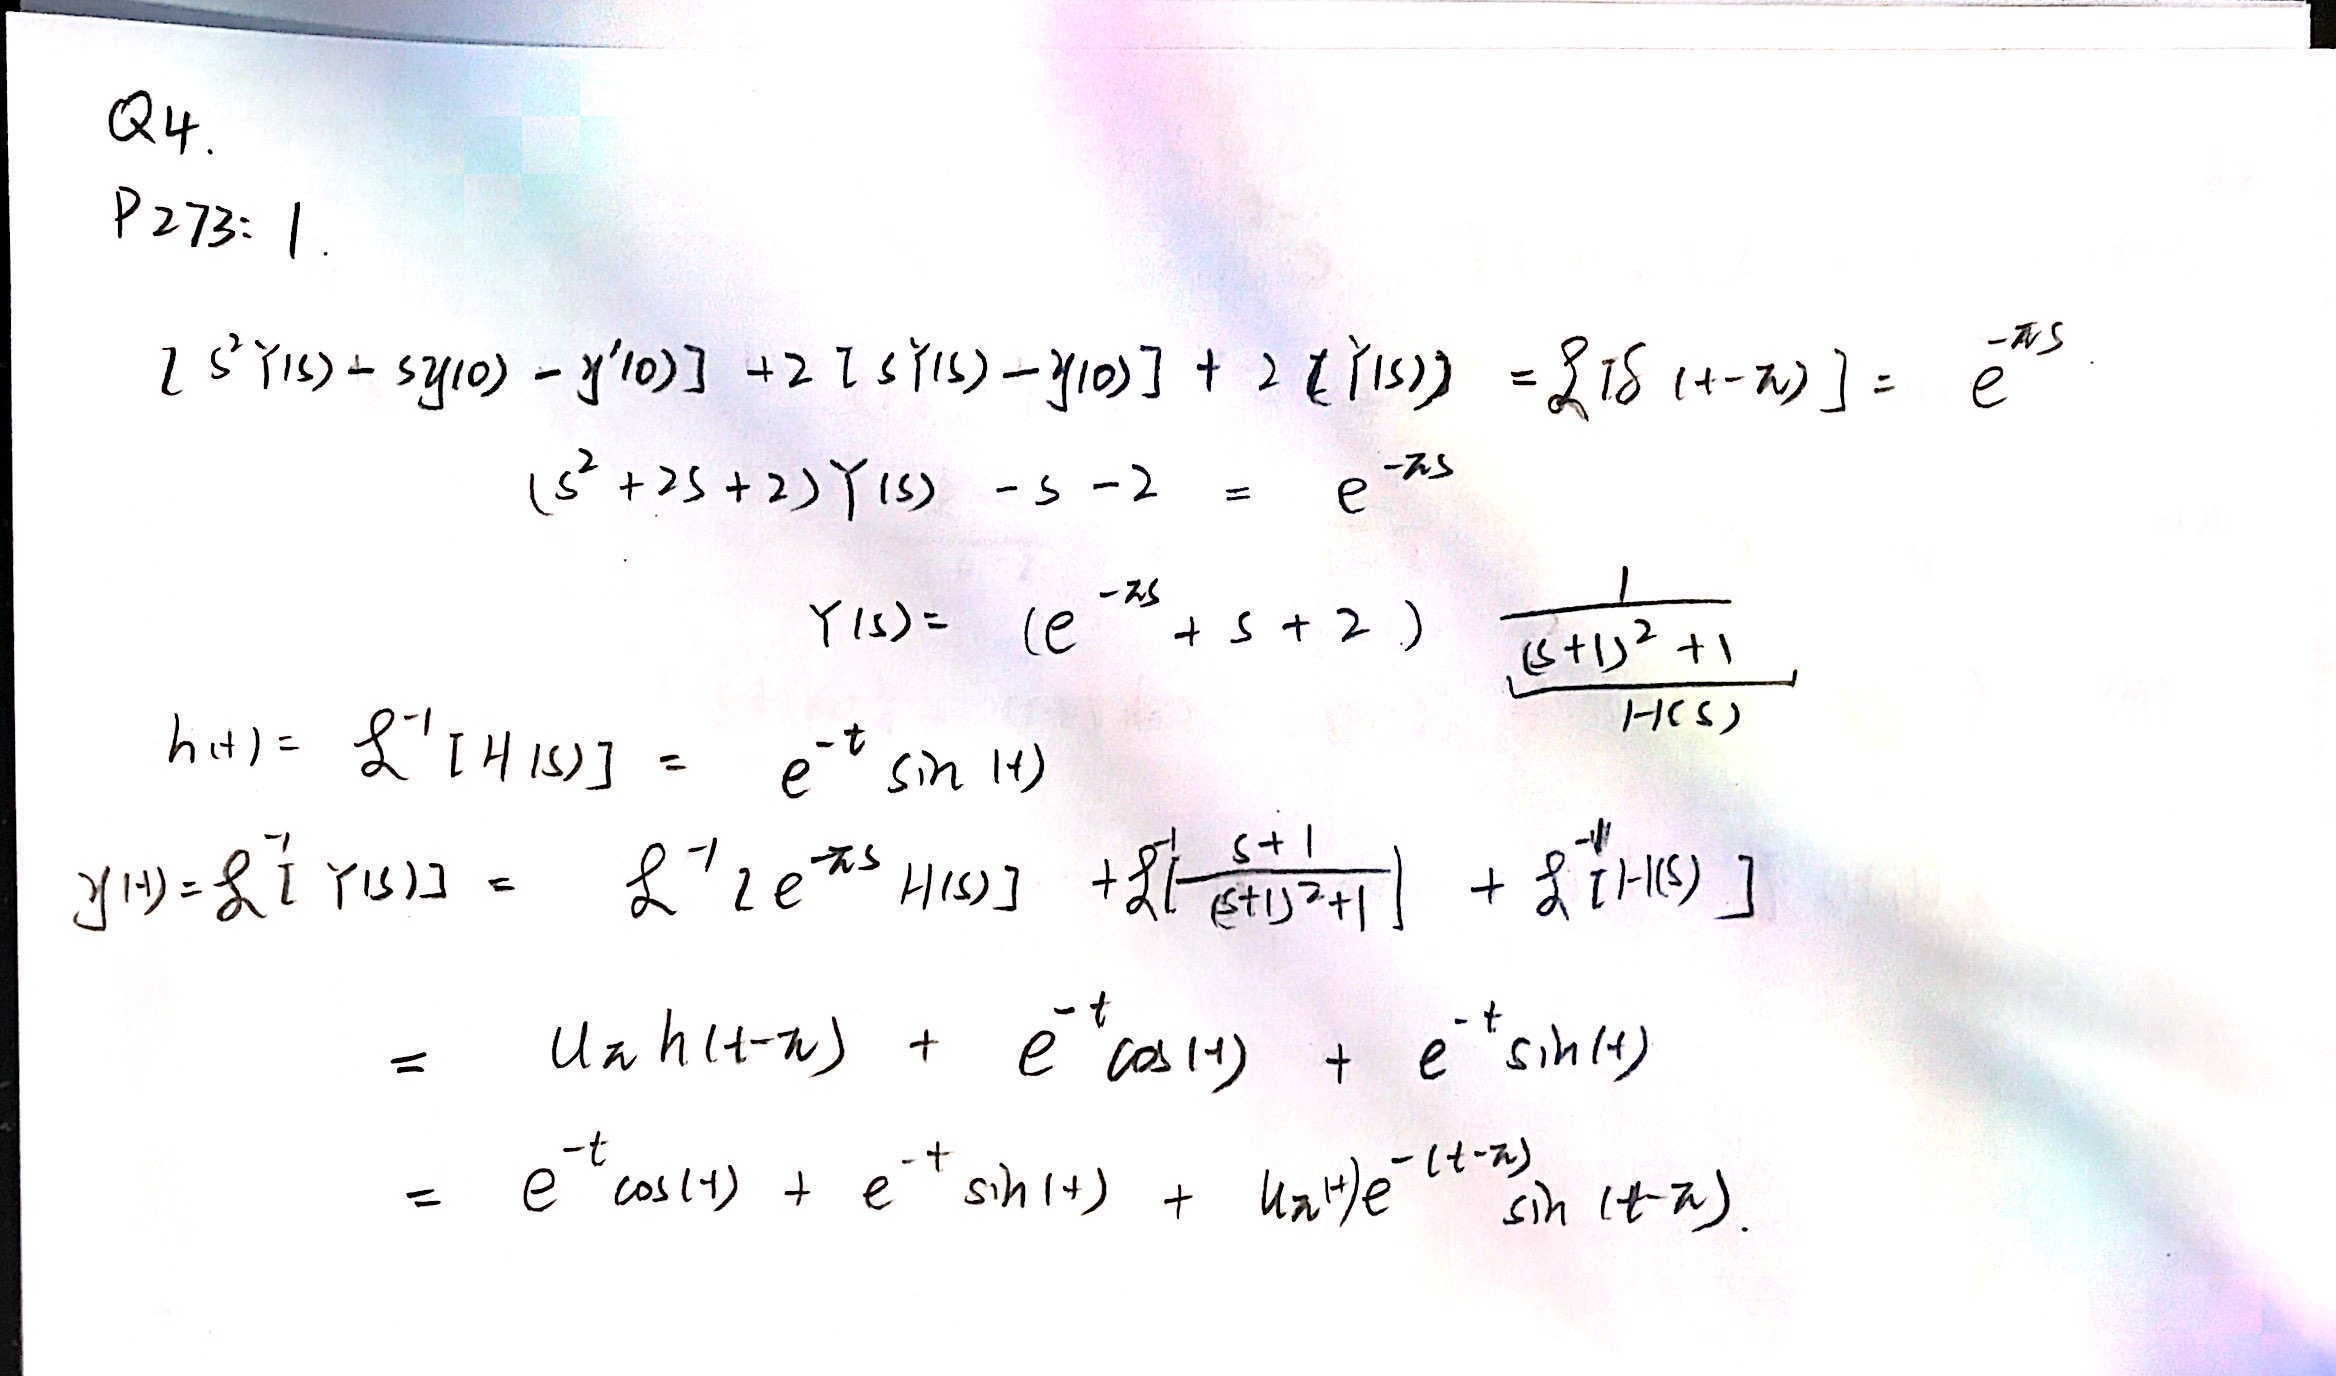 Q4.
P273: 1.
[s²Y(s) + sy(0) - y'(0)] + 2[sY(s) - y(0)] + 2[Y(s)] = ℒ[δ(t-π)] = e^{-πs}.
(s² + 2s + 2)Y(s) - s - 2 = e^{-πs}
Y(s) = (e^{-πs} + s + 2) 1/((s+1)² + 1)
H(s)
h(t) = ℒ⁻¹[H(s)] = e^{-t} sin(t)
y(t) = ℒ⁻¹[Y(s)] = ℒ⁻¹[e^{-πs} H(s)] + ℒ⁻¹[(s+1)/((s+1)²+1)] + ℒ⁻¹[H(s)]
= u_π h(t-π) + e^{-t} cos(t) + e^{-t} sin(t)
= e^{-t} cos(t) + e^{-t} sin(t) + u_π(t) e^{-(t-π)} sin(t-π).